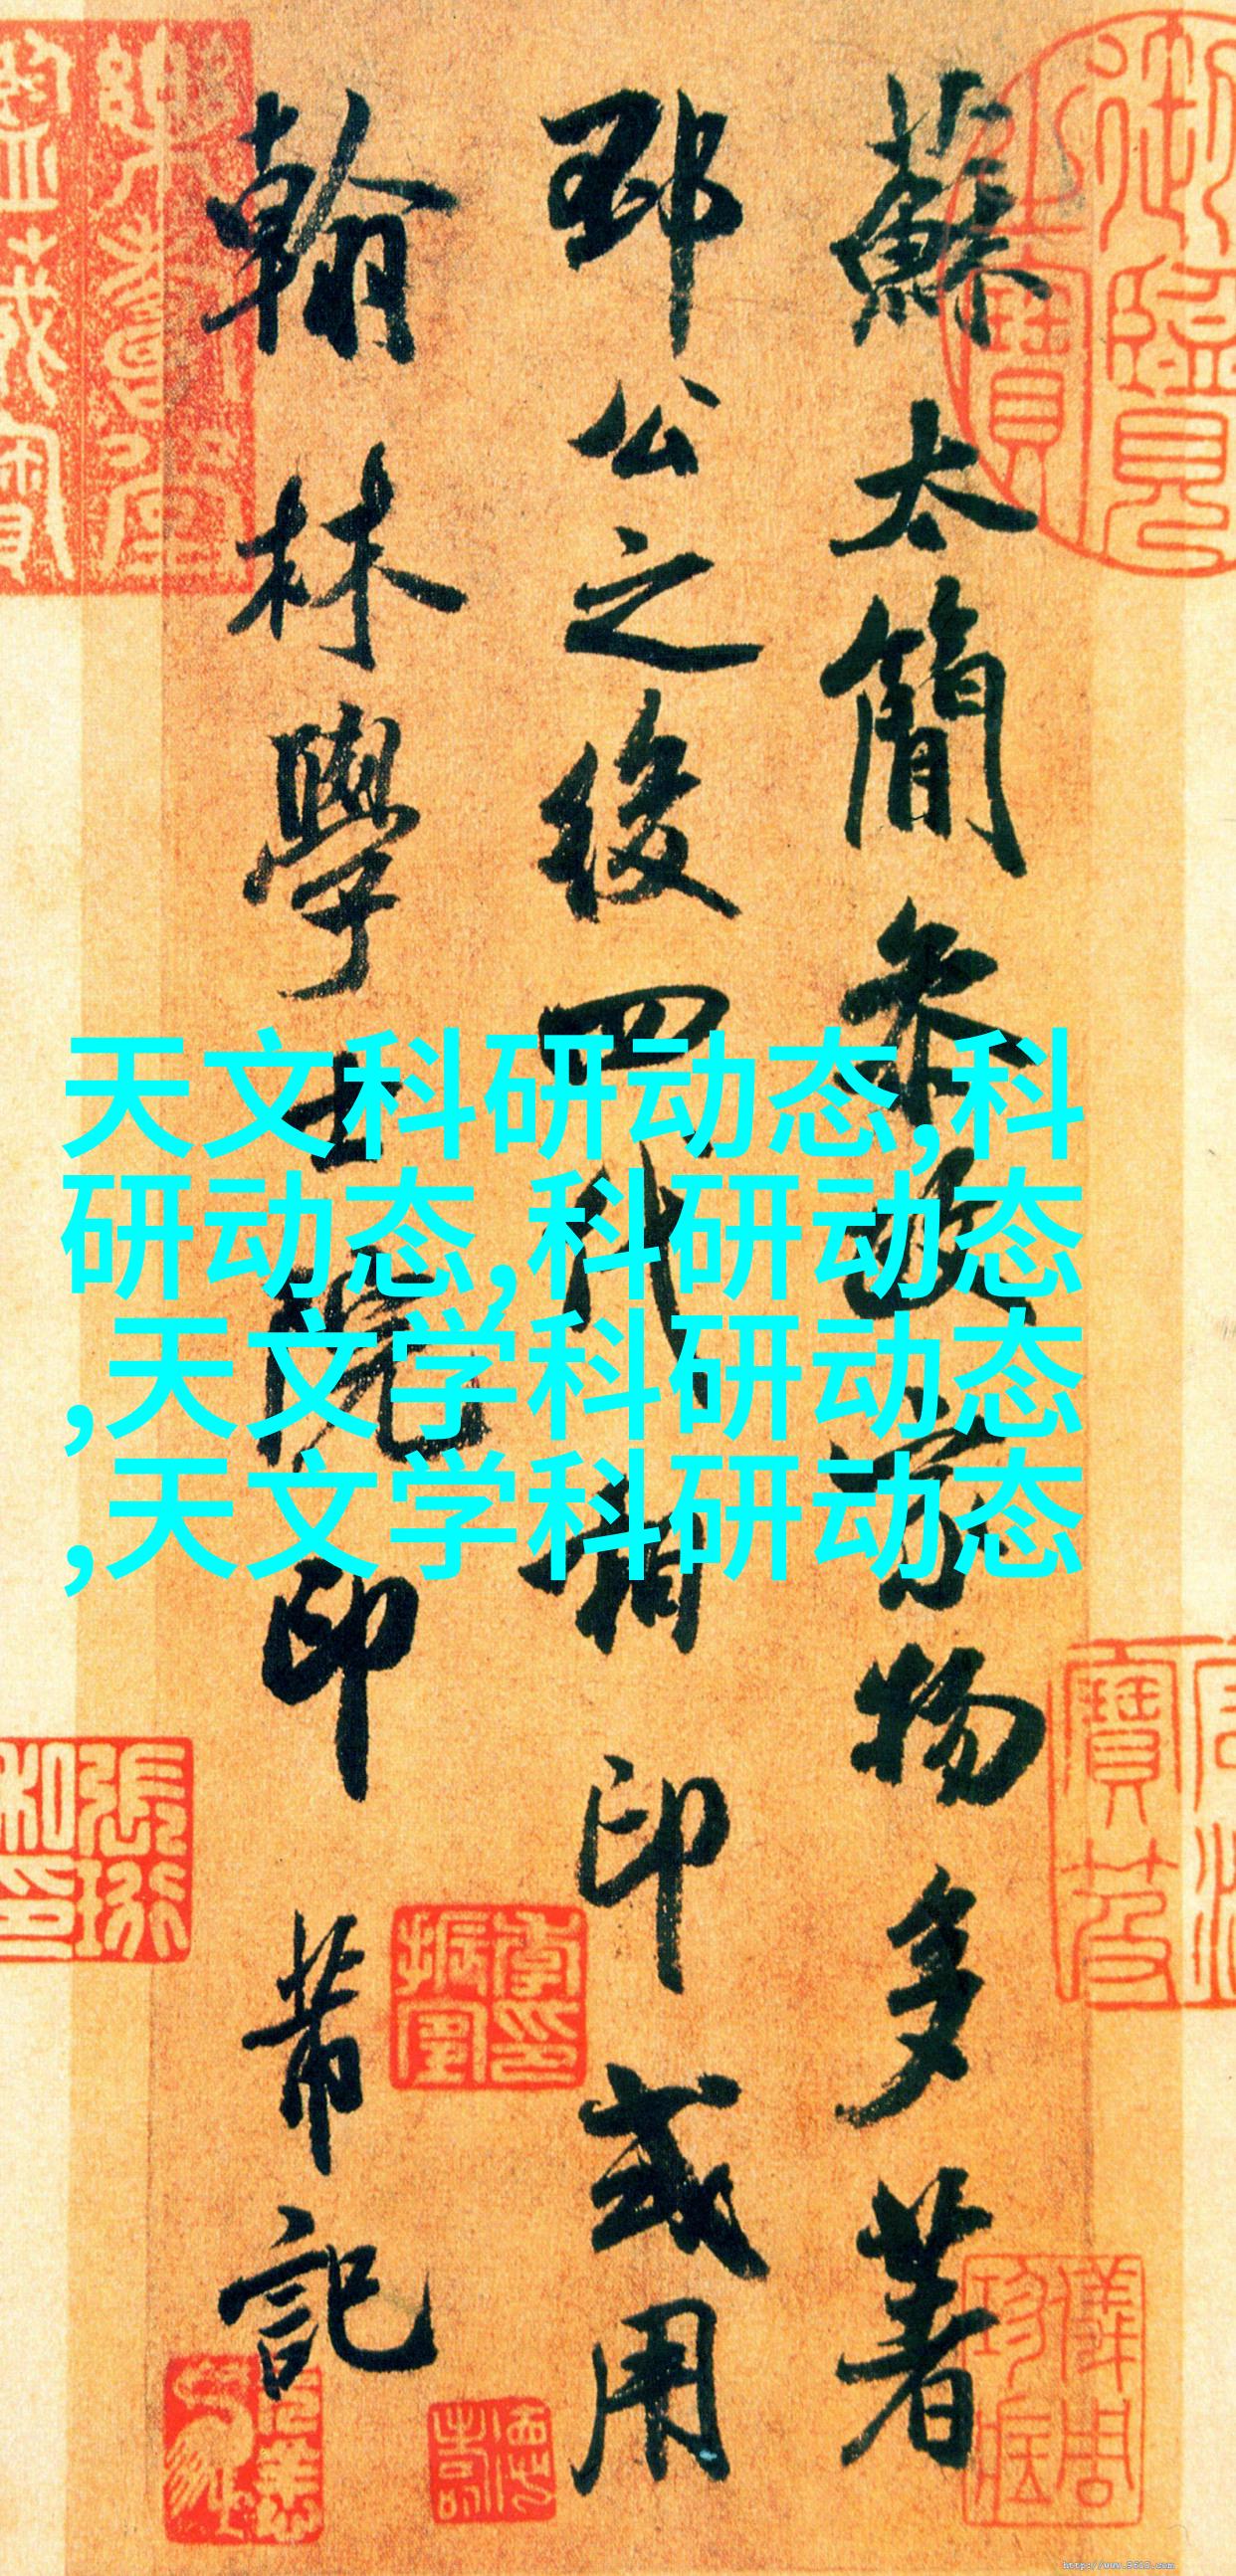 天文科研动态,科
研动态,科研动态
,天文学科研动态
,天文学科研动态
蘇太簡參政家物多著
邳公之後四代相印或用
翰林學士院印芾記
儀周珍藏